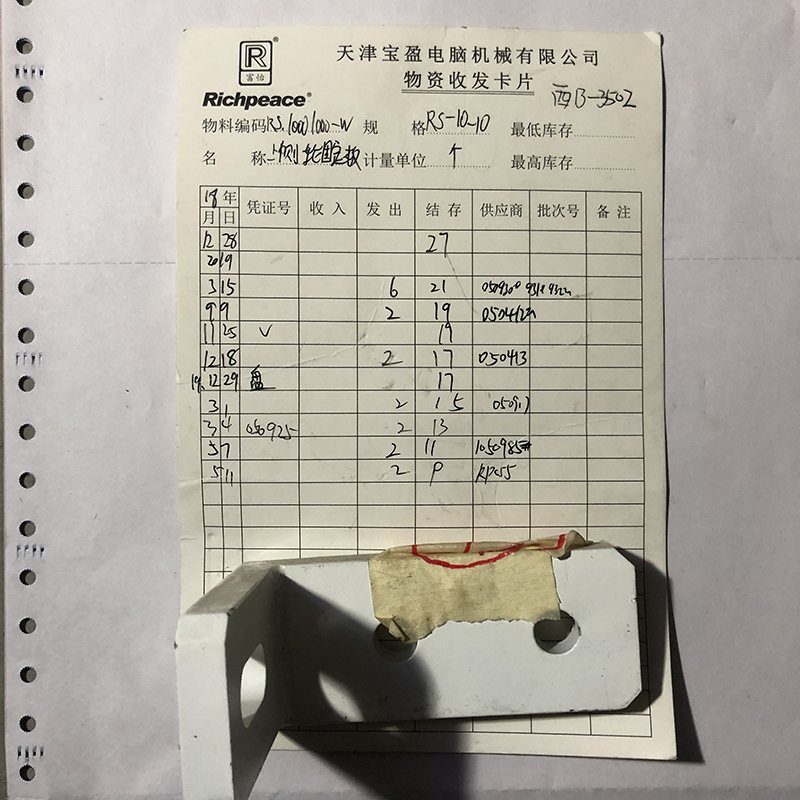 R
®
富怡
Richpeace®
天津宝盈电脑机械有限公司
物资收发卡片
西B-3502
物料编码 RS.10001000-W 规 格 RS-10-10 最低库存
名 称 计量单位 个 最高库存
18年
月 日 凭证号 收入 发出 结存 供应商 批次号 备注
12 28 27
2019
3 15 6 21
9 9 2 19
11 25 V 19
12 18 2 17 050413
19. 12 29 盘 17
3 1 2 15
3 4 050925 2 13
5 7 2 11 1050985#
5 11 2 9